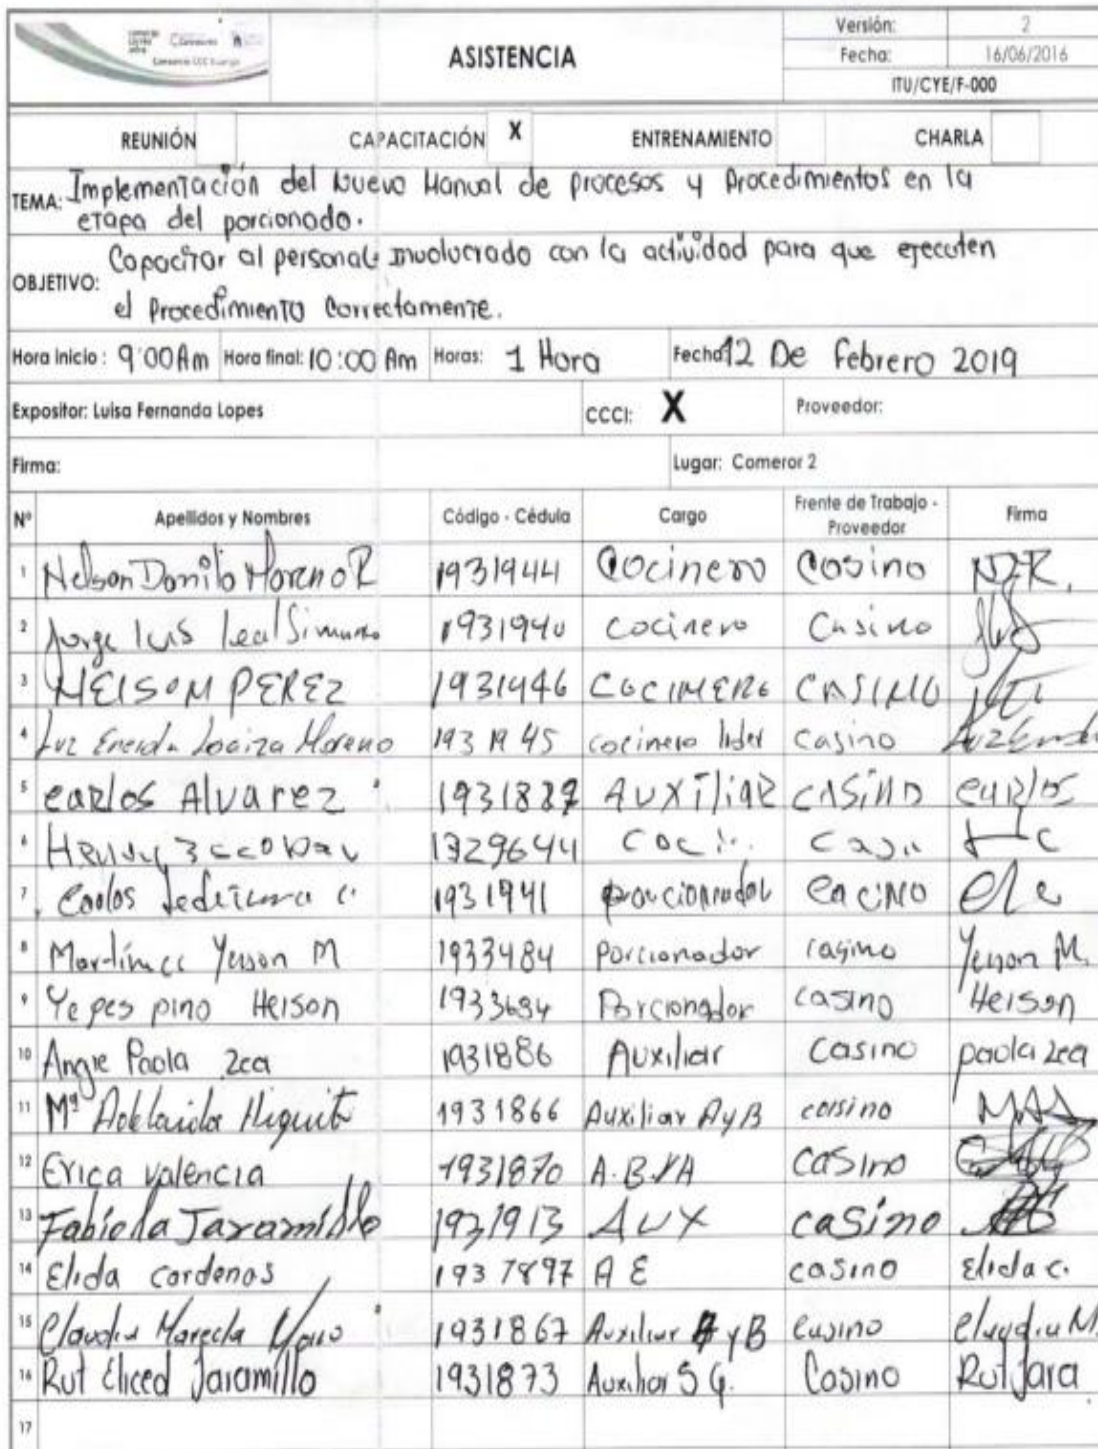 Consorcio CCC Ituango
ASISTENCIA
Versión: 2
Fecha: 16/06/2016
ITU/CYE/F-000
REUNIÓN CAPACITACIÓN X ENTRENAMIENTO CHARLA
TEMA: Implementación del Nuevo Manual de procesos y Procedimientos en la
etapa del porcionado.
OBJETIVO: Capacitar al personal involucrado con la actividad para que ejecuten
el Procedimiento Correctamente.
Hora inicio: 9:00 Am Hora final: 10:00 Am Horas: 1 Hora Fecha 12 De Febrero 2019
Expositor: Luisa Fernanda Lopes CCCI: X Proveedor:
Firma: Lugar: Comeror 2
Nº Apellidos y Nombres Código - Cédula Cargo Frente de Trabajo - Proveedor Firma
1 Nelson Danilo Moreno R 1931944 Cocinero Casino
2 Jorge luis leal 1931940 cocinero Casino
3 NELSON PEREZ 1931946 COCINERO CASINO
4 Luz Enerda Loaiza Moreno 1931945 cocinero lider casino
5 carlos Alvarez AUXiliaR CASiNO carlos
6 1329644 Coci.
7 Carlos 1931941 porcionador Cacino
8 Yeison M 1933484 Porcionador casino Yeison M.
9 Yepes pino Heison 1933694 Porcionador casino Heison
10 Angie Paola Zea 1931886 Auxiliar Casino paola zea
11 Mª Adelaida Higuit 1931866 Auxiliar AyB casino
12 Erica valencia 1931870 A.B.YA casino
13 Fabiola Jaramillo 1931913 AUX casino
14 Elida cardenas 1937897 A E casino Elida c.
15 Claudia Marcela 1931867 Auxiliar A y B Casino Claudia M.
16 Rut Eliced Jaramillo 1931873 Auxiliar S G. Casino Rut Jara
17